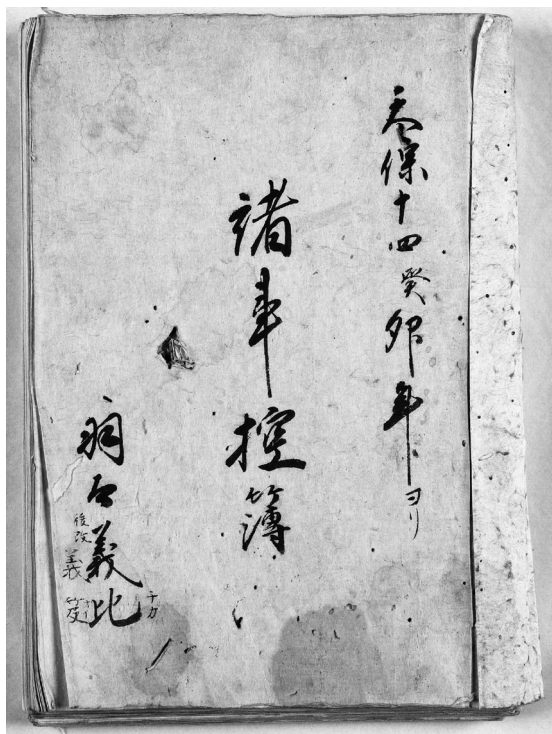 天保十四癸卯年ヨリ
諸事控簿
義比
チカ
後改
義